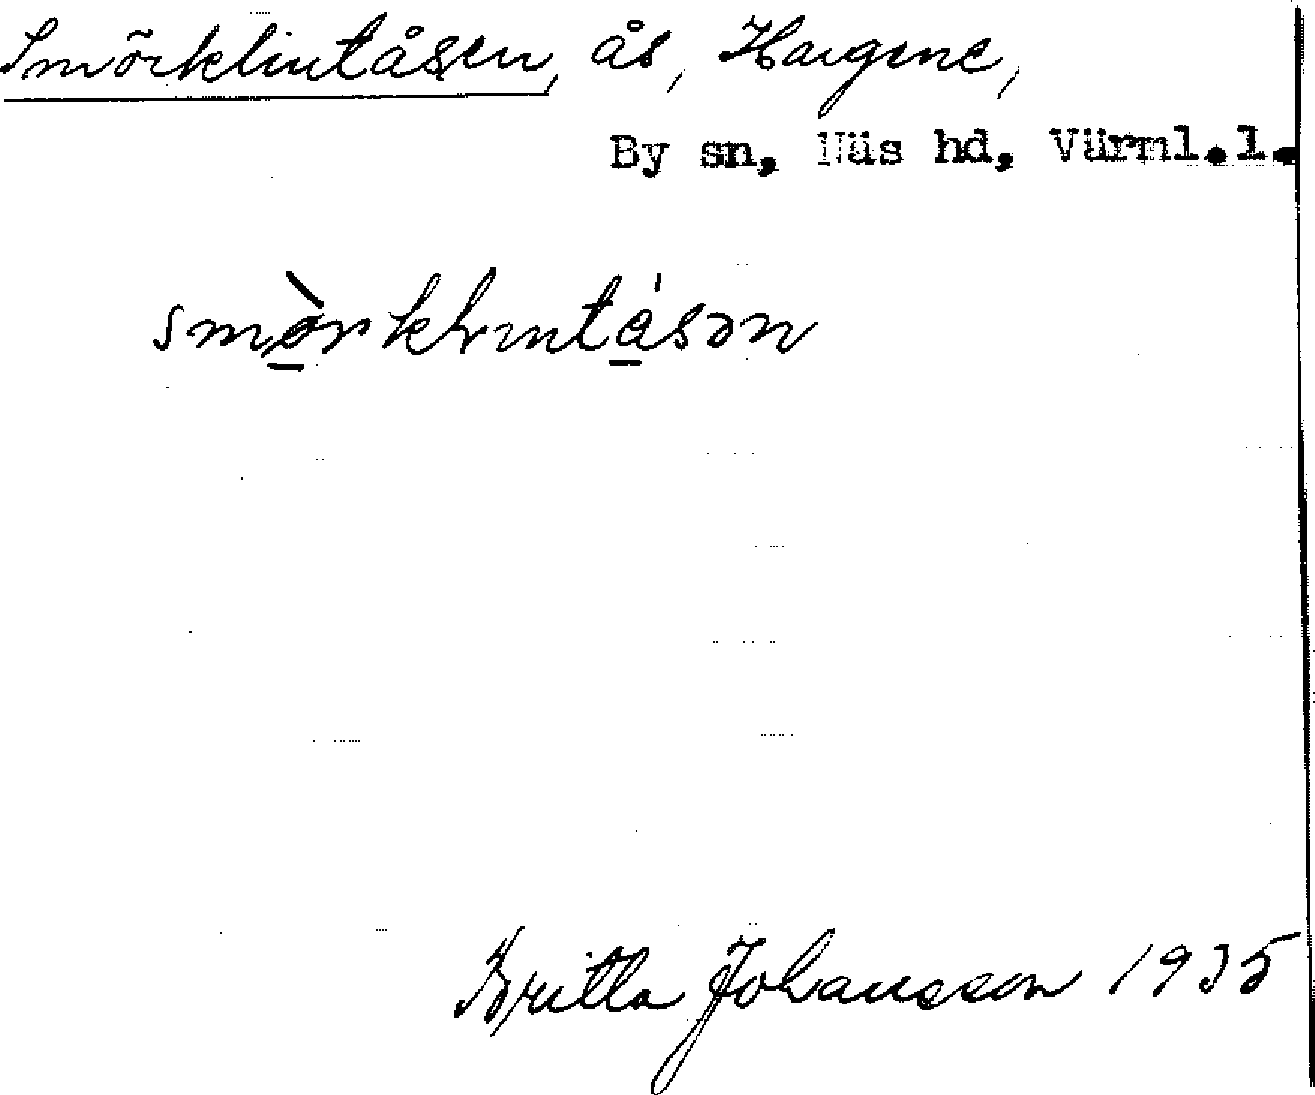 Smörklintåsen, ås, Haugene,
By sn, Näs hd, Värml.l.
smòrklintásən
Britta Johansson 1935